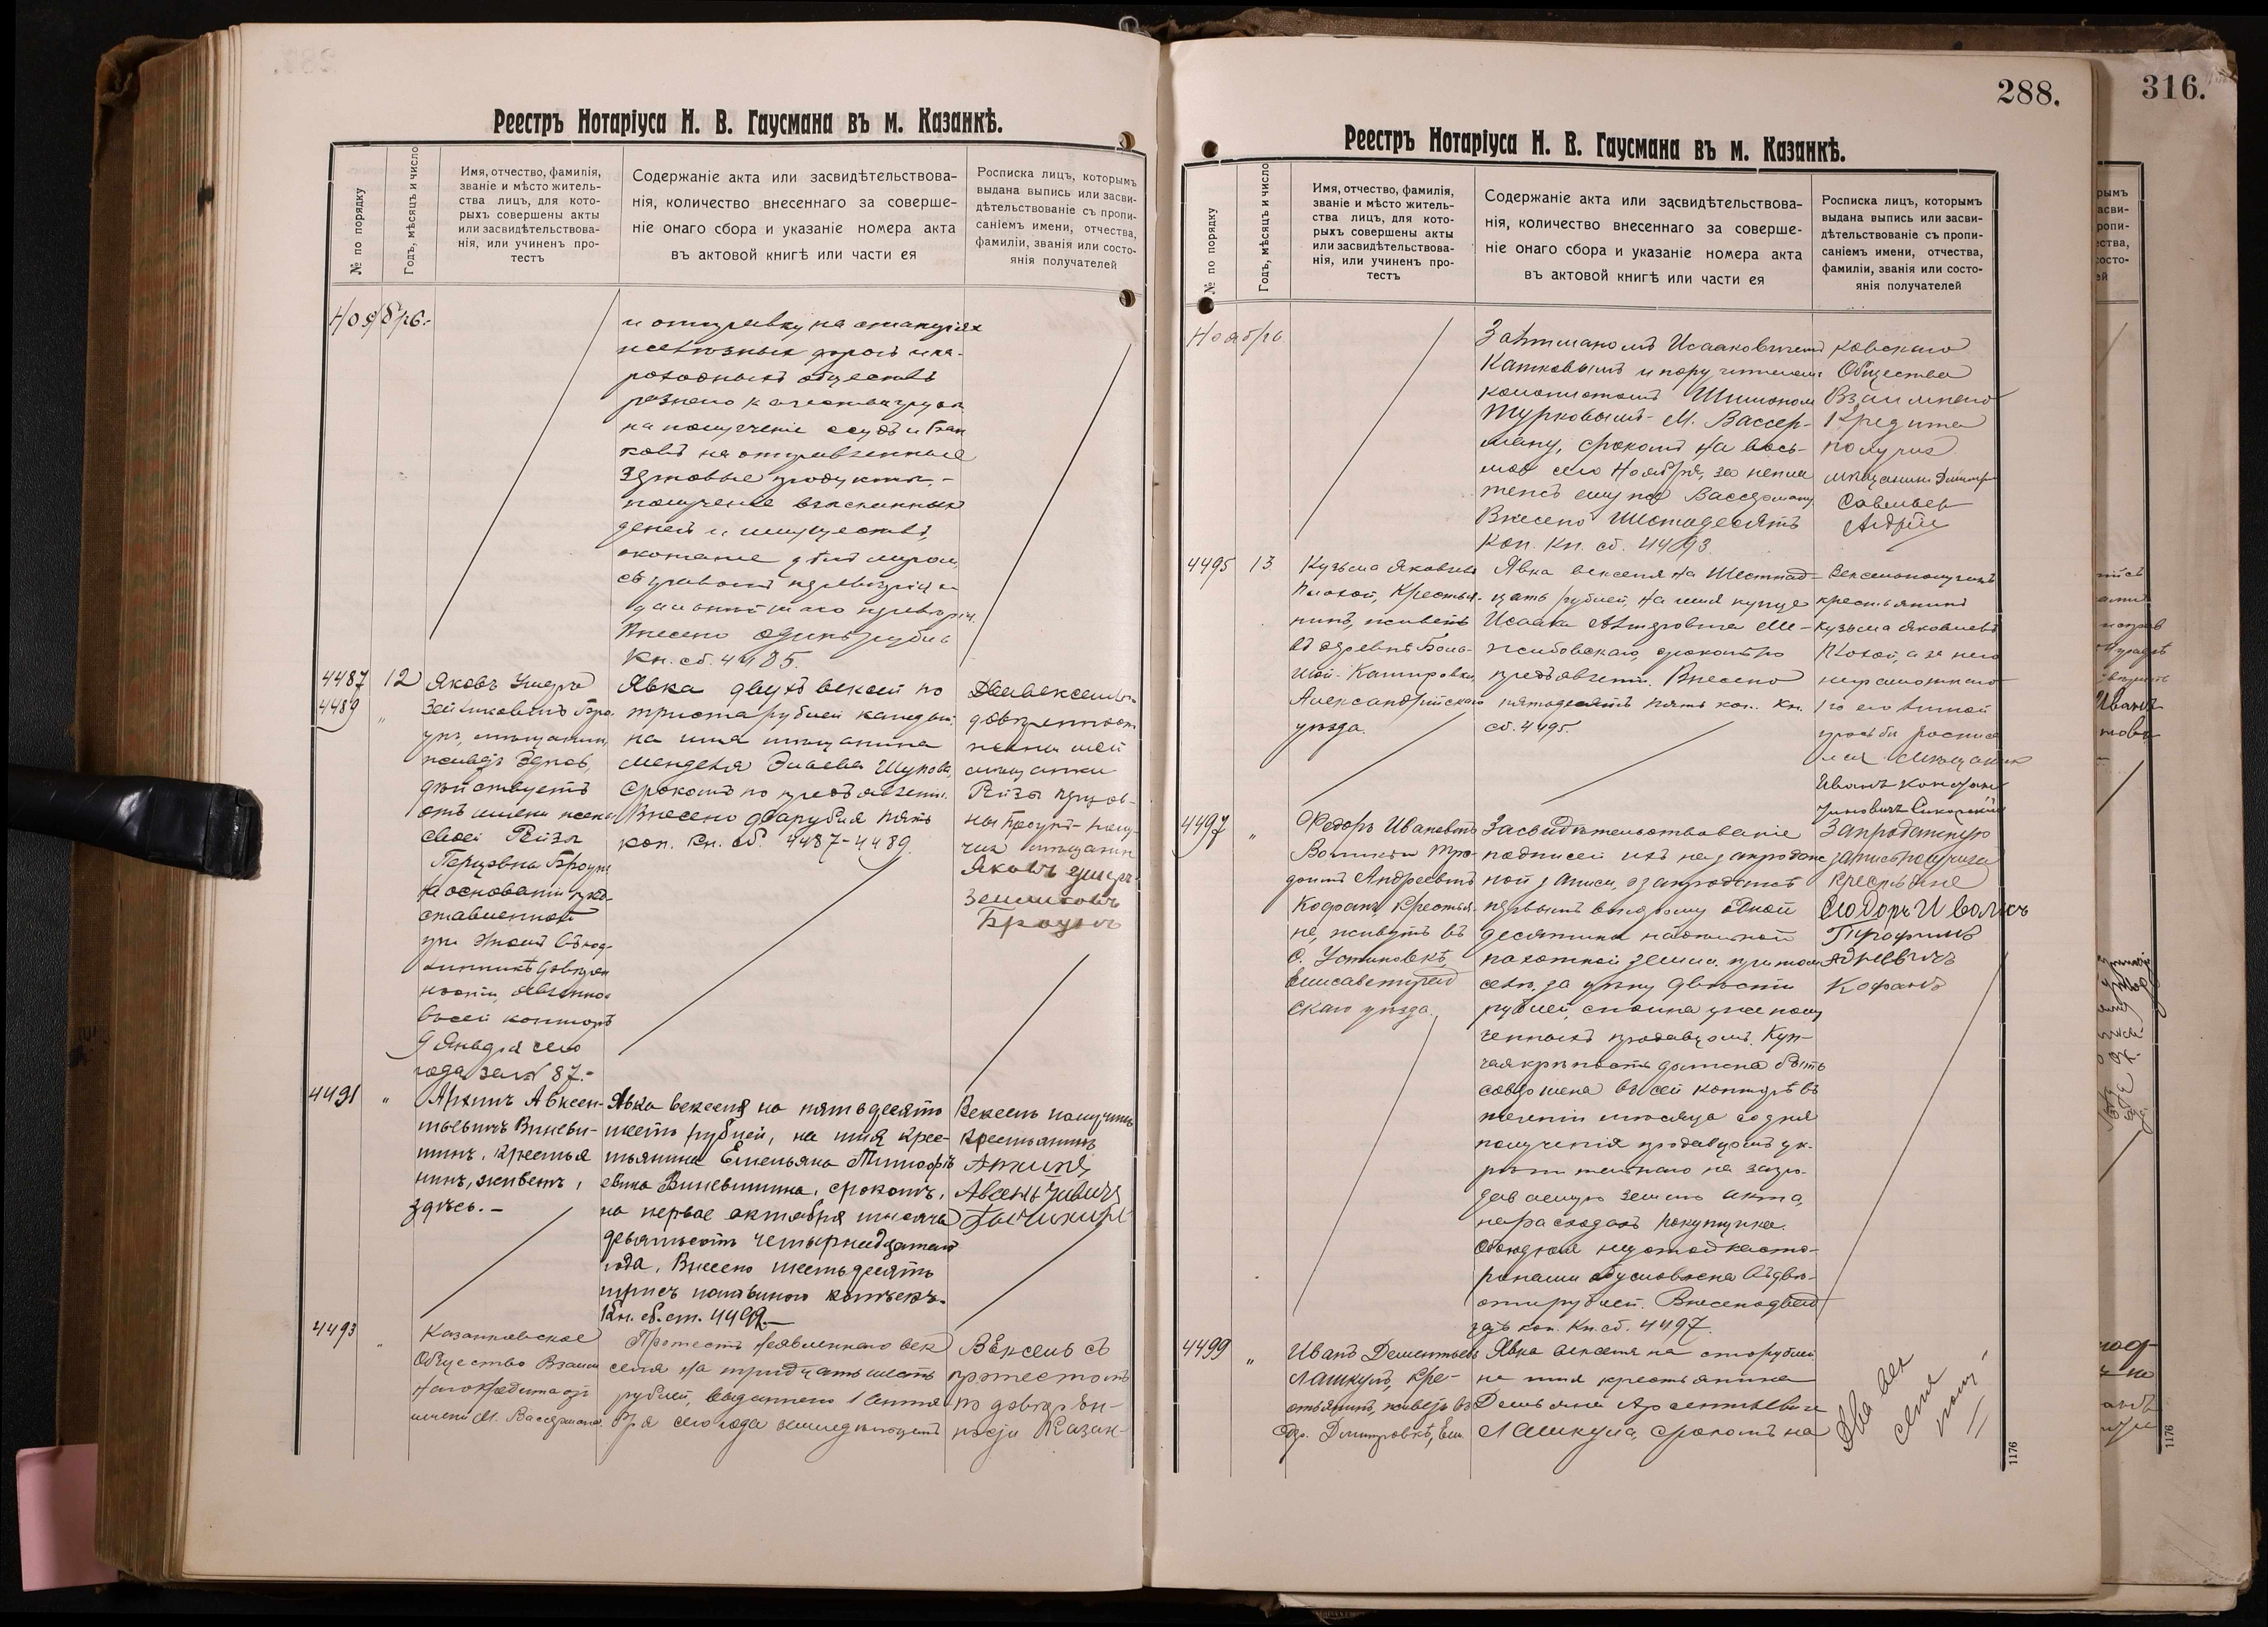 Реестръ Нотаріуса Н. В. Гаусмана въ м. Казанкѣ.
№ по порядку
Годъ, мѣсяцъ и число
Имя, отчество, фамилія,
званіе и мѣсто житель-
ства лицъ, для кото-
рыхъ совершены акты
или засвидѣтельствова-
нія, или учиненъ про-
тестъ
Содержаніе акта или засвидѣтельствова-
нія, количество внесеннаго за соверше-
ніе онаго сбора и указаніе номера акта
въ актовой книгѣ или части ея
Росписка лицъ, которымъ
выдана выпись или засви-
дѣтельствованіе съ пропи-
саніемъ имени, отчества,
фамиліи, званія или состо-
янія получателей
Ноябрь.
и отправку на станціях
желѣзныхъ дорогъ и па-
роходныхъ обществъ
разнаго качества груза
на полученіе ссудъ и Бан
ковъ на отправленные
зерновые продукты, -
полученіе взысканныхъ
денегъ и имуществъ,
окончаніе дѣлъ миром,
съ правомъ передовѣрія и
дальнѣйшаго передовѣрія.
Внесено одинъ рубль
Кн. сб. 4485.
4487
4489
12
Яковъ Ушеръ
Зейликовичъ Бро
унъ, мѣщанин,
живетъ здѣсь,
дѣйствуетъ
отъ имени жены
своей Рейзи
Герцовны Броунъ
на основаніи пред-
ставленной
при этомъ въ под-
линникѣ довѣрен
ности, явленной
въ сей конторѣ
9 Января сего
года за № 87.-
Явка двухъ векселей по
триста рублей каждый
на имя мѣщанина
Менделя Эльева Шупова,
срокомъ по предъявленіи.
Внесено два рубля пять
коп. Кн. сб. 4487-4489.
Два векселя
довѣренност
жены моей
мѣщанки
Рейзи Герцов-
ны Броунъ - полу-
чил мѣщанин
Яковъ Ушеръ
Зейликовъ
Броунъ
4491
"
Антипъ Авксен-
тьевичъ Виневи-
тинъ, крестья
нинъ, живетъ,
здѣсь.-
Явка векселя на пятьдесятъ
шесть рублей, на имя крес-
тьянина Емельяна Тимофѣ
евича Виневитина, срокомъ,
на первое октября тысяча
девятьсотъ четырнадцатаго
года. Внесено шестьдесятъ
три съ половиною копѣекъ.
Кн. сб. ст. 4491.
Вексель получилъ
Крестьянинъ
Антипъ
4493
"
Казанковское
Общество Взаим
наго Кредита отъ
имени М. Вассермана.
Протестъ неявленнаго век
селя на тридцать шесть
рублей, выданнаго 1 Октя
бря сего года землевладѣльцемъ
Вексель съ
протестомъ
по довѣрен-
ности Казан-
288.
Реестръ Нотаріуса Н. В. Гаусмана въ м. Казанкѣ.
№ по порядку
Годъ, мѣсяцъ и число
Имя, отчество, фамилія,
званіе и мѣсто житель-
ства лицъ, для кото-
рыхъ совершены акты
или засвидѣтельствова-
нія, или учиненъ про-
тестъ
Содержаніе акта или засвидѣтельствова-
нія, количество внесеннаго за соверше-
ніе онаго сбора и указаніе номера акта
въ актовой книгѣ или части ея
Росписка лицъ, которымъ
выдана выпись или засви-
дѣтельствованіе съ пропи-
саніемъ имени, отчества,
фамиліи, званія или состо-
янія получателей
Ноябрь.
Залманомъ Исааковичемъ
Катковымъ и поручителем
колонистомъ Шимоном
Турковымъ - М. Вассер-
ману, срокомъ на вось-
мое сего Ноября, за непла
тежъ ему по Вассерману
Внесено шестьдесятъ
коп. Кн. сб. 4493.
ковскаго
Общества
Взаимнаго
Кредита
получил
мѣщанинъ Димитри
Савельев
4495
13
Кузьма Яковлевъ
Плохой, Крестья-
нинъ, живетъ
въ деревнѣ Боль-
шой-Кашировкѣ
Александрійскаго
уѣзда.
Явка векселя на Шестнад-
цать рублей, на имя купца
Исаака
срокомъ по
предъявленіи. Внесено
пятьдесятъ пять коп. Кн.
сб. 4495.
Вексель получилъ
крестьянинъ
Кузьма Яковлевъ
Плохой, а за него
неграмотнаго
по его личной
просьбѣ росписа
лся мѣщанин
Иванъ
4497
"
Федоръ Ивановичъ
Волинъ и Тро-
фимъ Андреевичъ
Кофанъ, Крестья-
не, живутъ въ
с. Устиновкѣ,
Елисаветград
скаго уѣзда.
Засвидѣтельствованіе
подписей ихъ на запродаж
ной записи, о запродажѣ
первымъ второму одной
десятины надѣльной
пахотной земли при том
селѣ, за цѣну двѣсти
рублей, сполна уже полу
ченныхъ продавцомъ. Куп-
чая крѣпость должна быть
совершена въ сей конторѣ въ
теченіи мѣсяца со дня
полученія продавцомъ ук-
рѣпительнаго на запро-
даваемую землю акта,
на расходахъ покупщика.
Обоюдная неустойка сто-
ронами обусловлена въ двѣ-
сти рублей. Внесено двад
цать коп. Кн. сб. 4497.
Запродажную
запись получили
крестьяне
Трофимъ
Кофанъ
4499
"
Иванъ Дементьевъ
Лашкулъ, Кре-
стьянинъ, живетъ въ
дер. Димитровкѣ, Ели.
Явка векселя на сто рублей
на имя крестьянина
Демьяна Арсентьевича
Лашкула, срокомъ на
Два век
селя
полу
1176
316.
1176